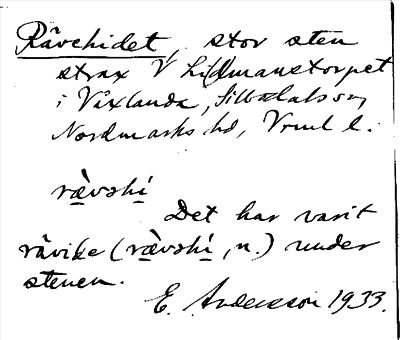 Rävehidet, stor sten
strax V Lillmanstorpet
i Växlanda, Sillbodals sn,
Nordmarks hd, Vrml l.
rævshi
Det har varit
rävike (rævshi, n.) under
stenen.
E. Andersson 1933.